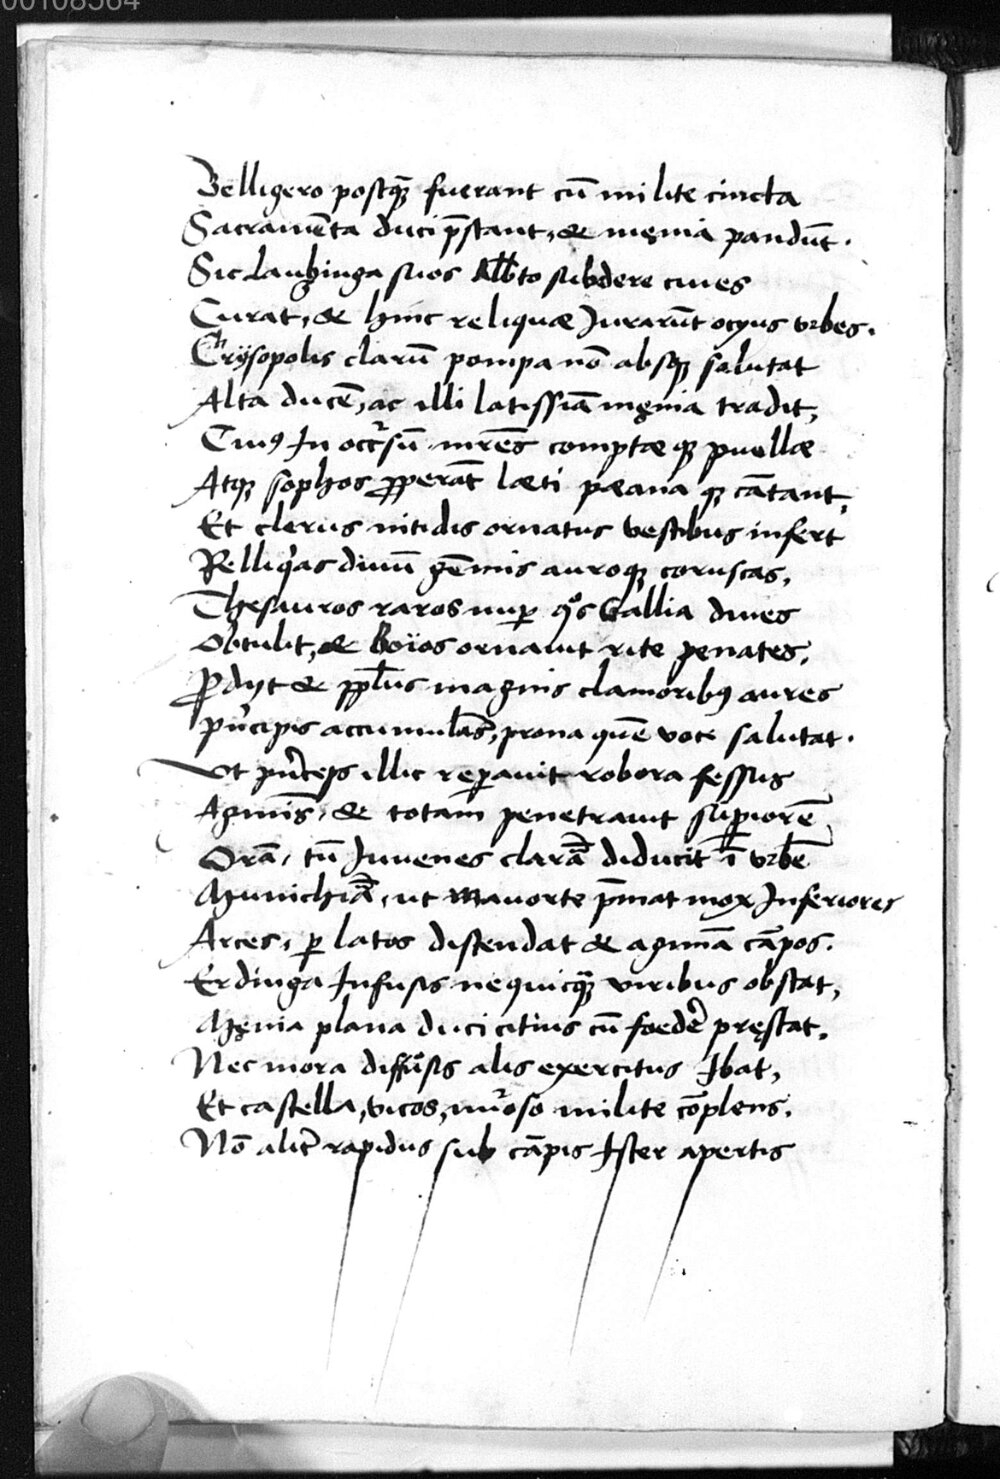 00108564
Belligero postq̃ fuerant cũ milite cincta
Sacramẽta duci p̃stant, & męnia pandũt.
Sic Laubinga suos Alb̃to subdere ciues
Curat, & hinc reliquæ Jurarũt ocyus vrbes.
Chrÿsopolis clarũ pompa nõ absq; salutat
Alta ducẽ, ac illi latissĩa męnia tradit,
Cuiꝰ In occr̃sũ mr̃es comptæ q; puellæ
Atq; sophos ꝓperãt læti pæana q; cãtant,
Et clerus nitidis ornatus vestibus infert
Relliq̃as diuũ gẽmis auroq; coruscas,
Thesauros raros nuꝑ q̊s Gallia diues
Obtulit, & Boïos ornauit rite penates.
Ꝓdijt & ppl̃us magnis clamoribꝰ aures
Pñcipis accumulãs, prona quẽ voce salutat.
Vt pñceps illic reparauit robora fessus
Agminis, & totam penetrauit suꝑiorẽ
Orã, tũ Juuenes clarã diducit ĩ vrbẽ
Munichiã, ut Mauorte p̃mat mox Inferiores
Arces, ꝑ latos distendat & agmina cãpos.
Erdinga Infusis nequicq̃ viribus obstat,
Męnia plana duci citius cũ foedẽ pręstat.
Nec mora diffusis alis exercitus Ibat,
Et castella, vicos, nũ̃oso milite cõplens.
Nõ alit̃ rapidus sub cãpis Ister apertis